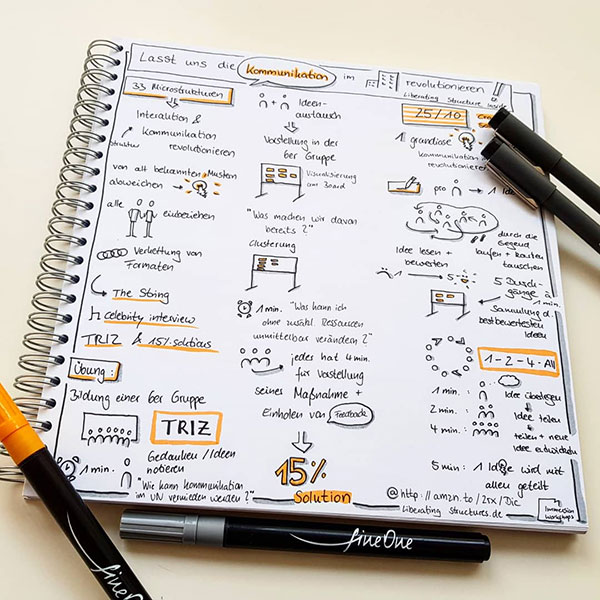 Lasst uns die Kommunikation im revolutionieren
Liberating Structure Inside
33 Microstrukturen
Interaktion &
Kommunikation
revolutionieren
struktur
von alt bekannten Mustern
abweichen
alle einbeziehen
Verkettung von
Formaten
The String
celebrity interview
TRIZ & 15%-solutions
Übung:
Bildung einer 6er Gruppe
TRIZ
Gedanken / Ideen
notieren
1 min.
"Wie kann Kommunikation
im UN vermieden werden?"
+ Ideen-
austausch
Vorstellung in der
6er Gruppe
Visualisierung
am Board
"Was machen wir davon
bereits?"
Clusterung
1 min. "Was kann ich
ohne zusätzl. Ressourcen
unmittelbar verändern?"
jedes hat 4 min.
für Vorstellung
seines Maßnahme +
Einholen von Feedback
15%
Solution
25/10
1 grandiose
Kommunikation
revolutionieren
pro 1 Idee
durch die
Gegend
laufen + Karten
tauschen
Idee lesen +
bewerten
5
5 Durch-
gänge à
1 min.
Sammlung d.
bestbewertesten
Ideen
1-2-4-All
1 min.: Idee überlegen
2 min.: Idee teilen
4 min.: teilen + neue
Idee entwickeln
5 min: 1 Idee wird mit
allen geteilt
@http://amzn.to/2rx/Die
Liberating structures.de
Immersion
Workshops
fineOne
fineOne